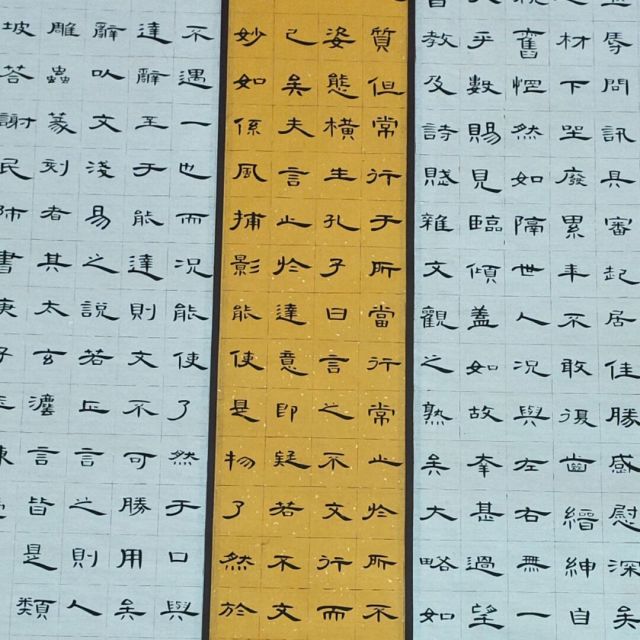 辱問訊具審起居佳勝感慰深矣
材下坐廢累年不敢復齒縉紳自
舊惘然如隔世人況與左右無一
乎數賜見臨傾蓋如故幸甚過望
教及詩賦雜文觀之熟矣大略如
質但常行于所當行常止於所不
姿態橫生孔子曰言之不文行而
已矣夫言止於達意即疑若不文
妙如係風捕影能使是物了然於
不遇一也而況能使了然于口與
達辭至于能達則文不可勝用矣
辭以文淺易之說若正言之則人
雕蟲篆刻者其太玄灋言皆是類
坡答謝民師書庚子